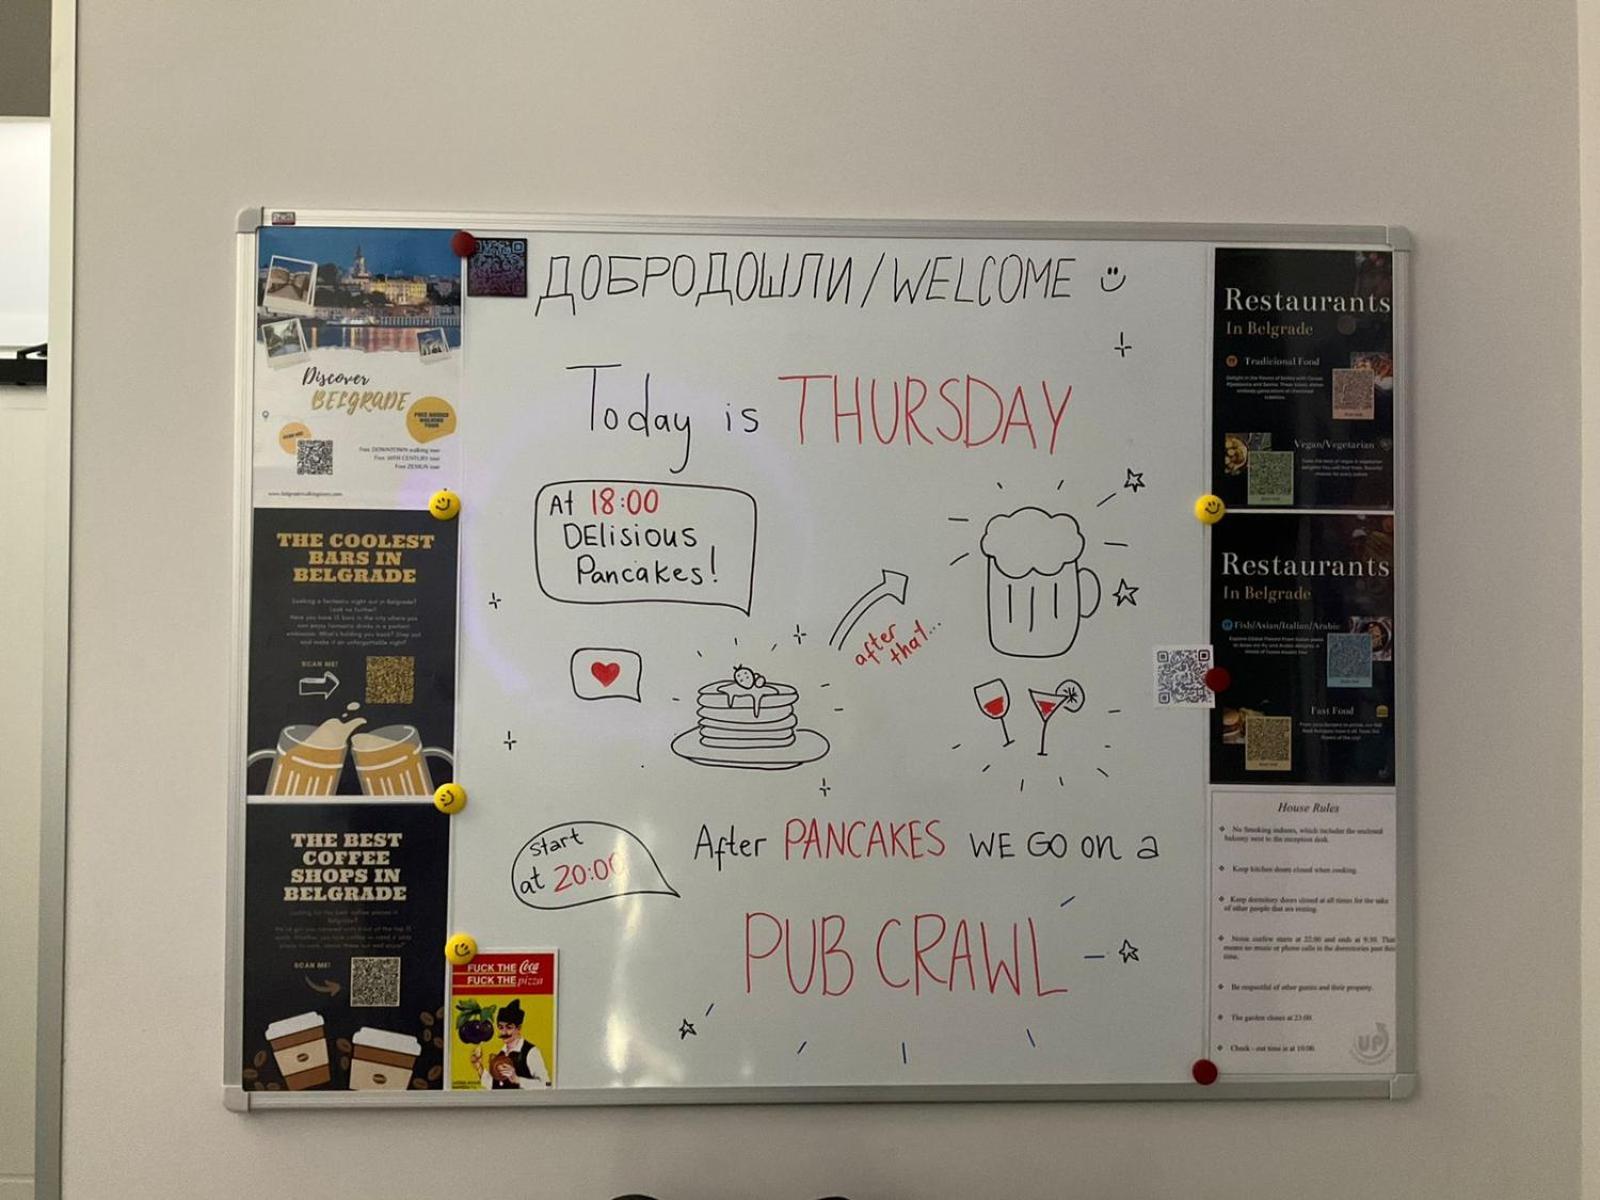 ДОБРОДОШЛИ/WELCOME
Today is THURSDAY
At 18:00
DElisious
Pancakes!
after
that...
start
at 20:00
After PANCAKES WE GO on a
PUB CRAWL
Discover
BELGRADE
FREE GUIDED
WALKING
TOUR
Free DOWNTOWN walking tour
Free 20TH CENTURY tour
Free ZEMUN tour
www.belgradewalkingtours.com
THE COOLEST
BARS IN
BELGRADE
Looking a fantastic night out in Belgrade?
Look no further!
SCAN ME!
THE BEST
COFFEE
SHOPS IN
BELGRADE
SCAN ME!
FUCK THE Coca
FUCK THE pizza
Restaurants
In Belgrade
Tradicional Food
Vegan/Vegetarian
Restaurants
In Belgrade
Fish/Asian/Italian/Arabic
Fast Food
House Rules
No Smoking indoors, which includes the enclosed
balcony next to the reception desk.
Keep kitchen doors closed when cooking.
Keep dormitory doors closed at all times for the sake
of other people that are resting.
Noise curfew starts at 22:00 and ends at 9:30. That
means no music or phone calls in the dormitories past this
time.
Be respectful of other guests and their property.
The garden closes at 23:00.
Check - out time is at 10:00.
UP